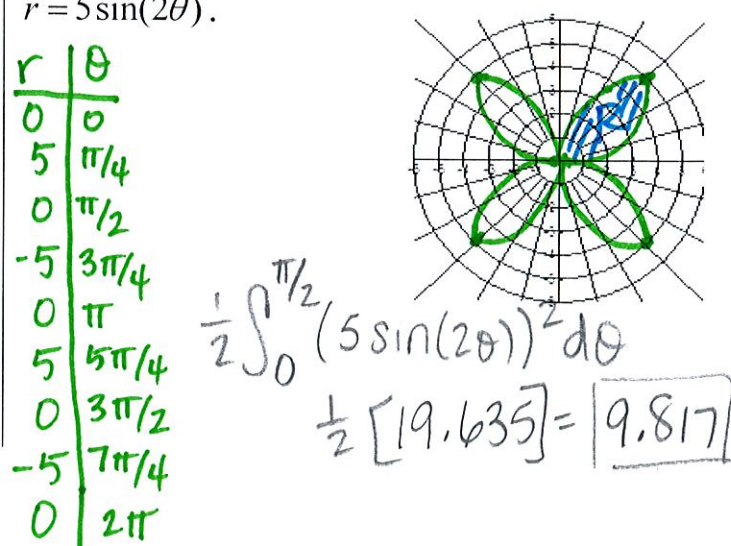 r = 5 sin(2θ).
r | θ
0 | 0
5 | π/4
0 | π/2
-5 | 3π/4
0 | π
5 | 5π/4
0 | 3π/2
-5 | 7π/4
0 | 2π
1/2 ∫₀^{π/2} (5 sin(2θ))² dθ
1/2 [19.635] = 9.817